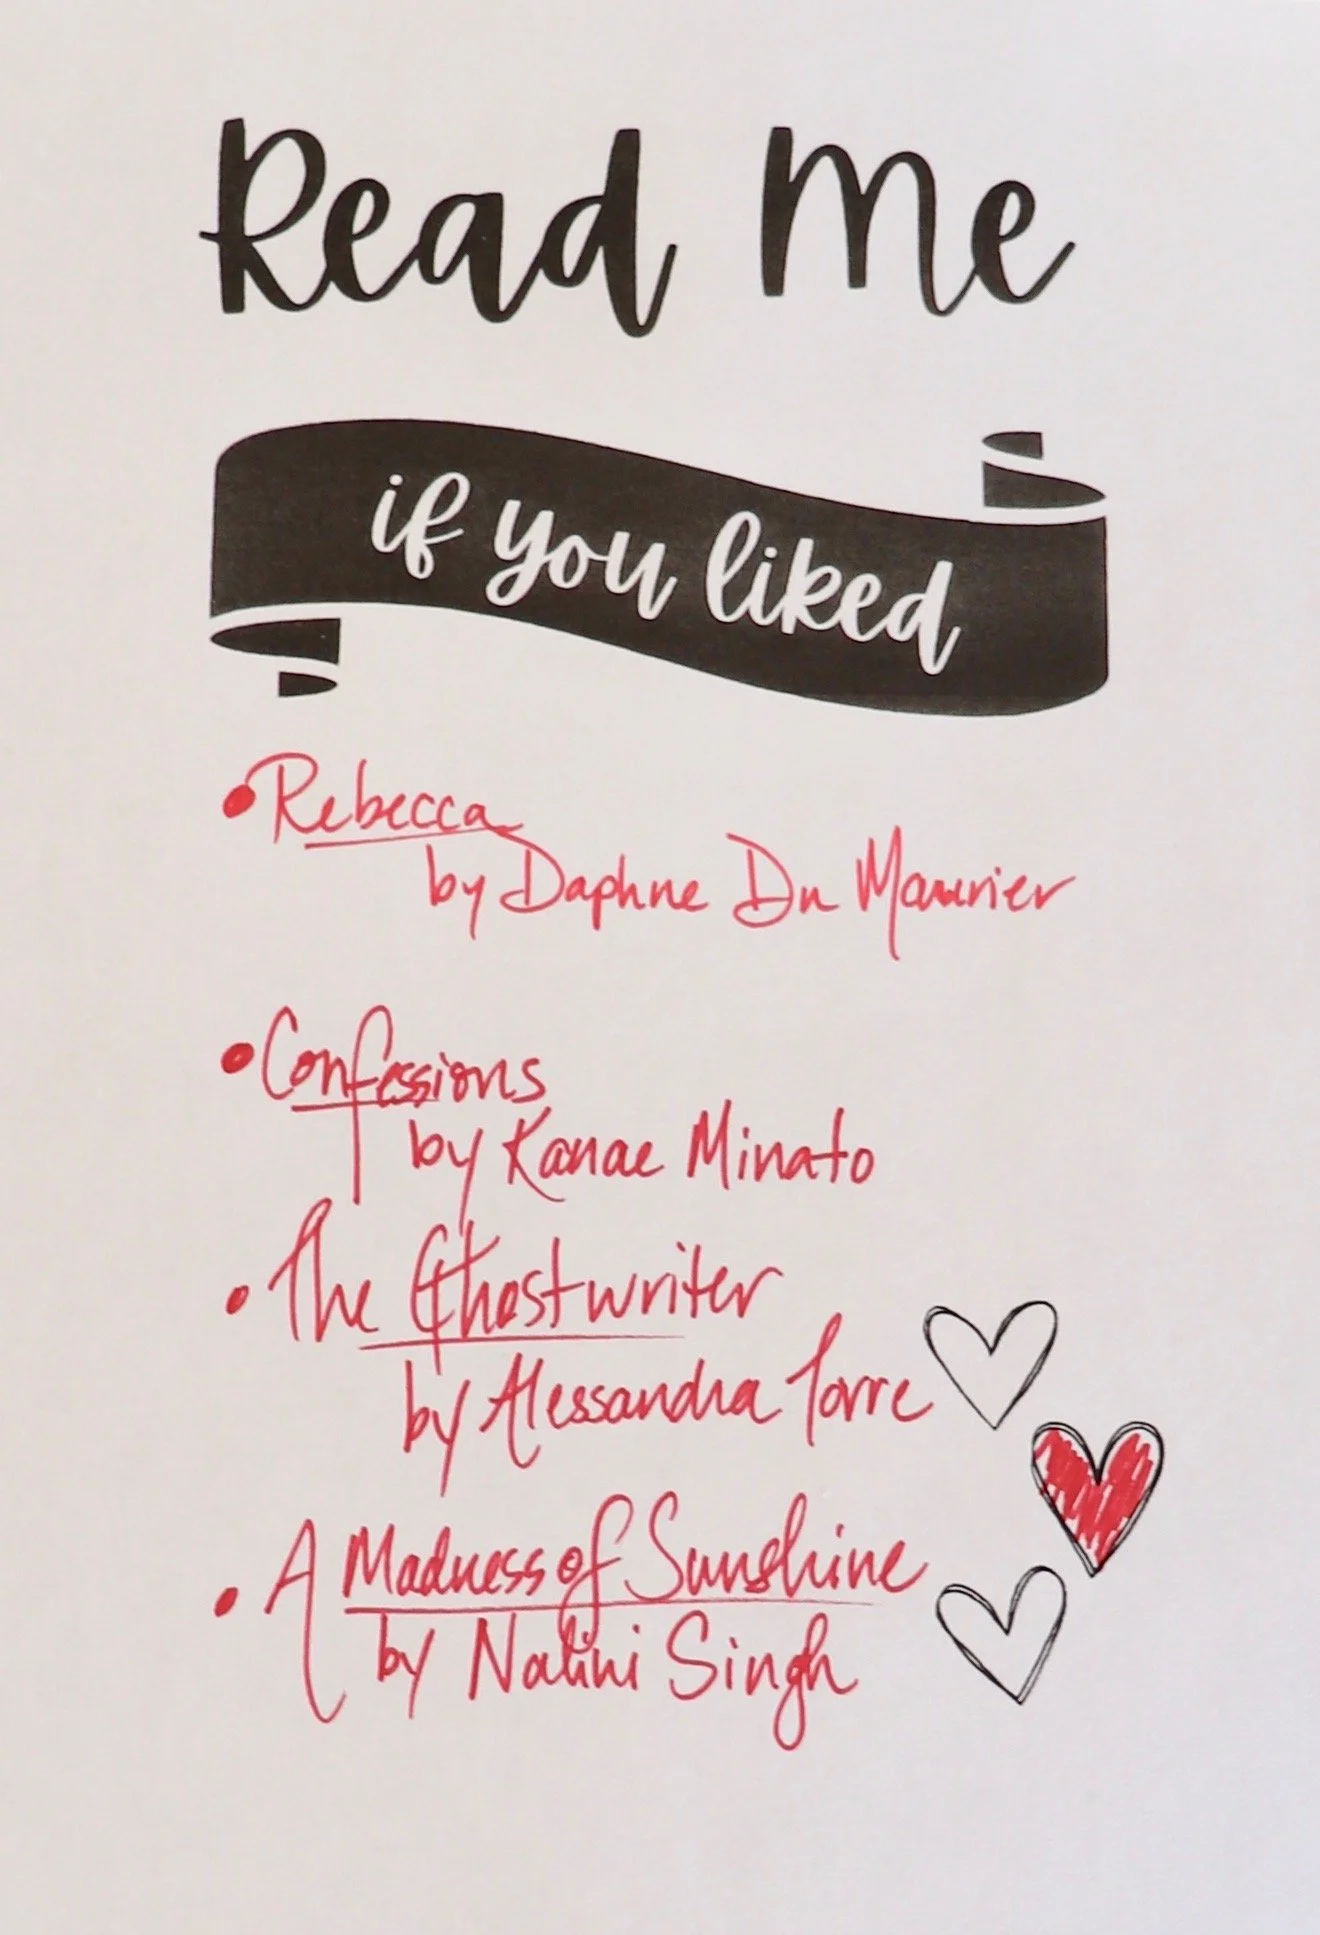 Read Me
if you liked
• Rebecca
by Daphne Du Maurier
• Confessions
by Kanae Minato
• The Ghostwriter
by Alessandra Torre
• A Madness of Sunshine
by Nalini Singh